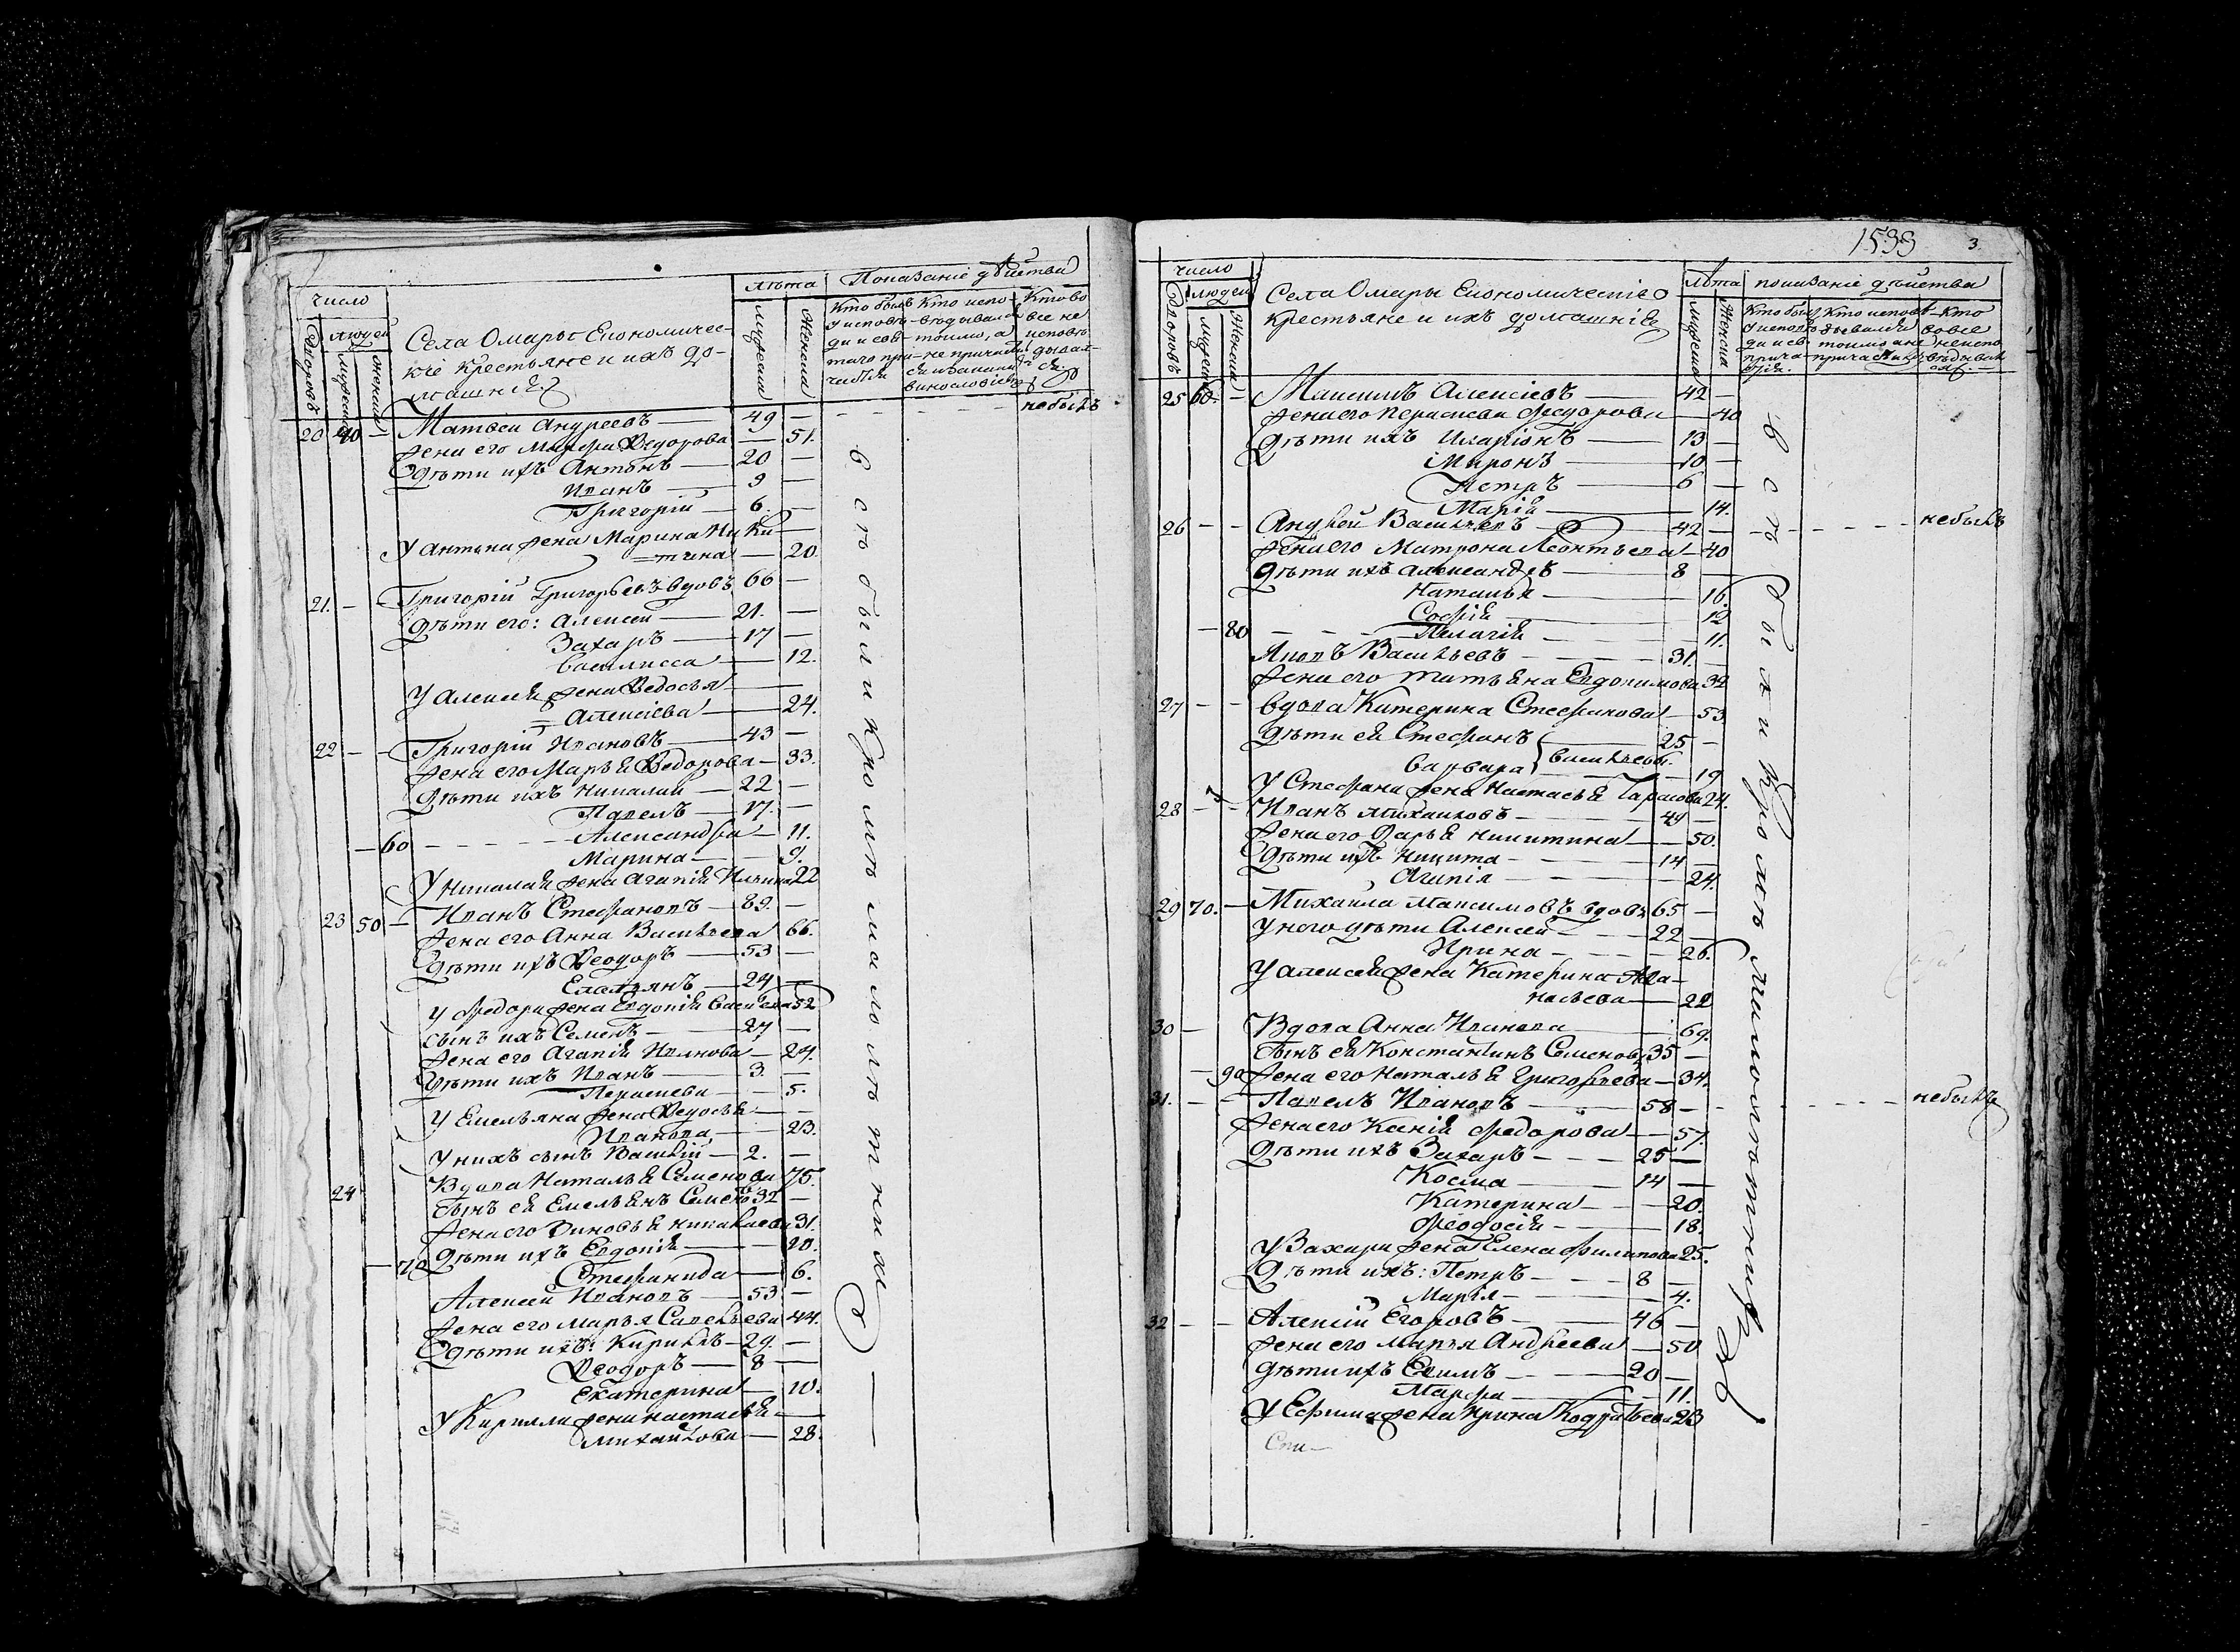 число
людей
дворовъ
мужеска
женска
Села Омары Економичес-
кіе крестьяне и ихъ до-
машніе
лѣта
мужеска
женска
Показаніе дѣйства
Кто былъ у исповѣди и свѣтаго при-
Кто испо-
вѣдывался
токмо, а
не причастил
ся и по какимъ
винословіямъ
Кто во
все не
исповѣ
дывал-
ся
20 40 — Матвеи Андреевъ — 49 — небылъ
Жена его Марфа Ѳедорова — 51.
Дѣти ихъ Антонъ — 20 —
Иванъ — 9 —
Григорій — 6. —
У Антона жена Марина Ники-
=тина — 20.
21. — — Григорій Григорьевъ вдовъ 66 —
Дѣти его: Алексеи — 21. —
Захаръ — 17 —
Василисса — 12.
У Алексея жена Ѳедосья —
= Алексіева — 24.
22 — — Григорій Ивановъ — 43 —
Жена его Марья Ѳедорова — 33.
Дѣти ихъ Николай — 22 —
Павелъ — 17. —
— 60 — Александра — 11.
Марина — 9.
У Николая жена Агапія Ильина 22
23 50 — Иванъ Стефановъ — 89. —
Жена его Анна Васильева 66.
Дѣти ихъ Ѳеодоръ — 53 —
Емельянъ — 24 —
У Федора жена Евдокія Васильева 52
Сынъ ихъ Семенъ — 27 —
Жена его Агапія Иванова — 24.
Дѣти ихъ Иванъ — 3. —
Перасковья — 5.
У Емельяна жена Ѳедосья —
Иванова — 23.
У нихъ сынъ Василій — 2. —
24 Вдова Наталья Семенова 75.
Сынъ ея Емельянъ Семенов 32 —
Жена его Зиновья Николаева 31.
— 70 Дѣти ихъ Евдокія — 10.
Стефанида — 6.
Алексеи Ивановъ — 53 —
Жена его Марья Савельева 44.
Дѣти ихъ: Кирилъ — 29. —
Ѳеодоръ — 8 —
Екатерина — 10.
У Кирилла жена Настасья —
Михайлова — 28.
всѣ были кромѣ малолѣтнихъ
1533 3
число
людей
дворовъ
мужеска
женска
Села Омары Економическіе
крестьяне и ихъ домашніе
лѣта
мужеска
женска
показаніе дѣйства
25 60. — Максимъ Алексіевъ — 42 —
Жена его Перасковья Федорова — 40
Дѣти ихъ Иларіонъ — 13 —
Миронъ — 10 —
Петръ — 6 —
Марія — 14.
26 — — Андрей Васильевъ — 42 — небылъ
Жена его Матрона Леонтьева — 40
Дѣти ихъ Александръ — 8 —
Наталья — 16.
Софія — 12
— 80 — Пелагія — 11.
Яковъ Васильевъ — 31. —
Жена его Татьяна Евдокимова 32
27 — — Вдова Катерина Стефанова — 53
Дѣти ея Стефанъ — 25 —
Варвара Васильевы. — 19
У Стефана жена Настасья Тарасова 24.
28 — — Иванъ Михаиловъ — 49 —
Жена его Дарья Никитина — 50.
Дѣти ихъ Никита — 14 —
Агапія — 24.
29 70. — Михаила Максимовъ вдовъ 65 —
У него дѣти Алексеи — 22 —
Ирина — 26.
У Алексея жена Катерина Афа-
насьева — 22
30 — Вдова Анна Иванова — 69.
Сынъ ея Константинъ Семеновъ 35 —
— 90 Жена его Наталья Григорьева — 34.
31. — — Павелъ Ивановъ — 58 — небылъ
Жена его Ксенія Федорова — 57.
Дѣти ихъ Захаръ — 25 —
Косма — 14 —
Катерина — 20.
Феодосія — 18.
У Захара жена Елена Филипова 25.
Дѣти ихъ: Петръ — 8 —
Марія — 4.
32 — — Алексій Егоровъ — 46 —
Жена его Марья Андреева — 50
Дѣти ихъ Ефимъ — 20 —
Марфа — 11.
У Ефима жена Ирина Кодратьева 23
всѣ были кромѣ малолѣтнихъ